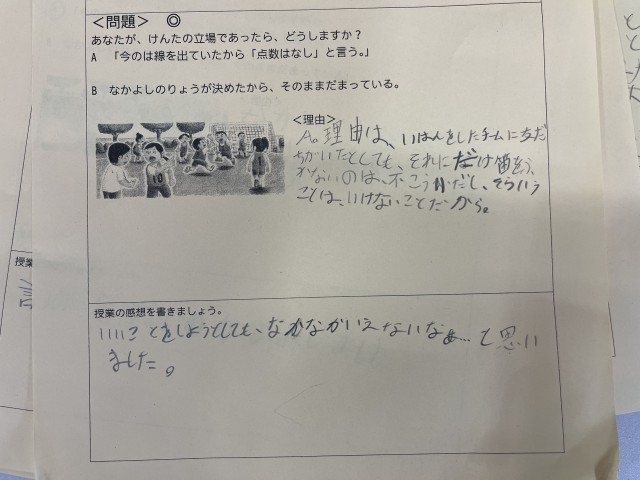 <問題> ◎
あなたが、けんたの立場であったら、どうしますか？
A 「今のは線を出ていたから「点数はなし」と言う。」
B なかよしのりょうが決めたから、そのままだまっている。
<理由>
A。理由は、いはんをしたチームに友だ
ちがいたとしても、それにだけ笛をう、
かないのは、不こうかだし、そういう
ことは、いけないことだから。
10
授業の感想を書きましょう。
いいことをしようとしても、なかなかいえないなぁ…と思い
ました。
授業